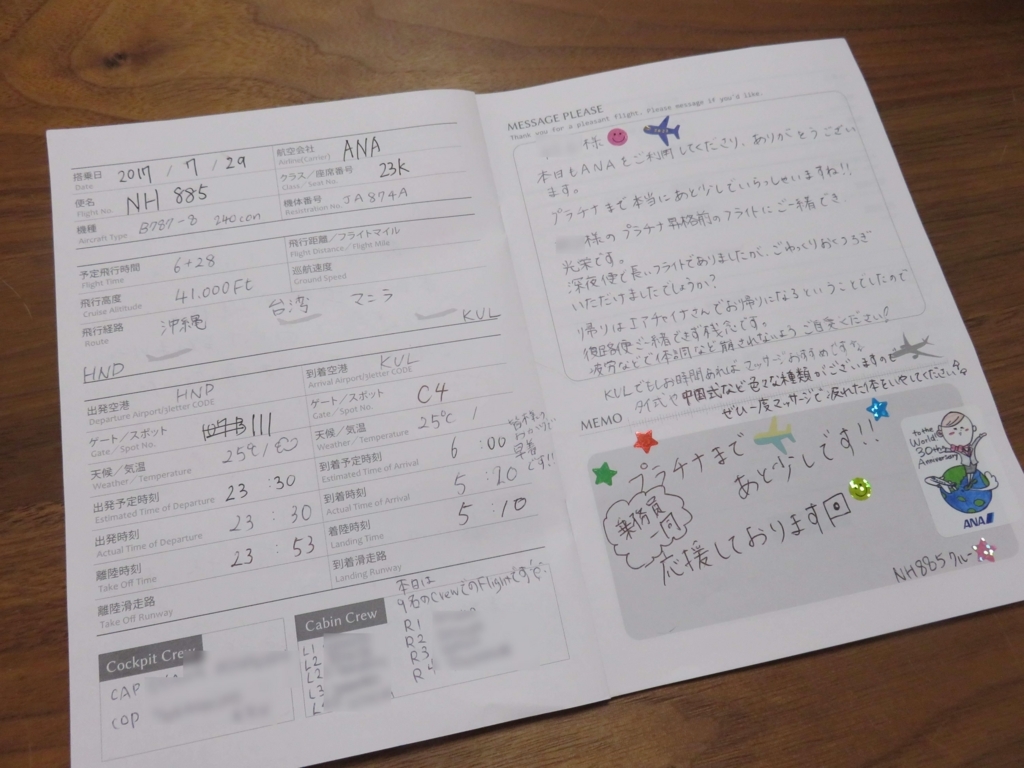 搭乗日 Date 2017 / 7 / 29
航空会社 Airline(Carrier) ANA
便名 Flight No. NH 885
クラス/座席番号 Class / Seat No. 23K
機種 Aircraft Type B787-8 240con
機体番号 Registration No. JA874A
予定飛行時間 Flight Time 6+28
飛行距離/フライトマイル Flight Distance / Flight Mile
飛行高度 Cruise Altitude 41.000Ft
巡航速度 Ground Speed
飛行経路 Route 沖縄 台湾 マニラ
HND KUL
出発空港 Departure Airport/3letter CODE HND
到着空港 Arrival Airport/3letter CODE KUL
ゲート/スポット Gate / Spot No. 111
ゲート/スポット Gate / Spot No. C4
天候/気温 Weather / Temperature 25℃ /
天候/気温 Weather / Temperature 25℃ /
出発予定時刻 Estimated Time of Departure 23 : 30
到着予定時刻 Estimated Time of Arrival 6 : 00
皆様の
おかげで
早着
です!!
出発時刻 Actual Time of Departure 23 : 30
到着時刻 Actual Time of Arrival 5 : 20
離陸時刻 Take Off Time 23 : 53
着陸時刻 Landing Time 5 : 10
離陸滑走路 Take Off Runway
到着滑走路 Landing Runway
Cockpit Crew
CAP
COP
Cabin Crew
本日は
9名のCrewでのFlightです
L1
L2
L2
L3
L4
R1
R2
R3
R4
MESSAGE PLEASE
Thank you for a pleasant flight. Please message if you'd like.
様
本日もANAをご利用してくださり、ありがとうござい
ます。
プラチナまで本当にあと少しでいらっしゃいますね!!
様のプラチナ昇格前のフライトにご一緒でき、
光栄です。
深夜便で長いフライトでありましたが、ごゆっくりおくつろぎ
いただけましたでしょうか?
帰りはエアチャイナさんでお帰りになるということでしたので
復路便ご一緒できず残念です。
疲労などで体調など崩されないようご自愛ください!
KULでもしお時間あればマッサージおすすめですよ
タイ式や中国式など色々な種類がございますので
ぜひ一度マッサージで疲れた体をいやしてください
MEMO
プラチナまで
あと少しです!!
乗務員
一同
応援しております
to the World 30th Anniversary
ANA
NH885クルー